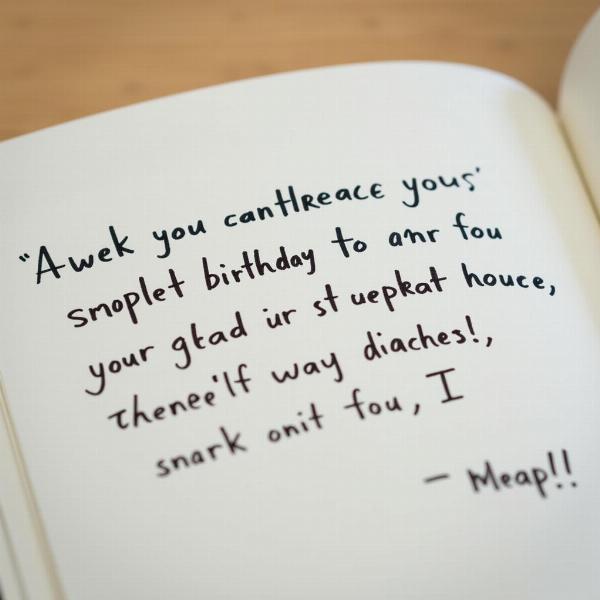 “Awek you cantlreace yous'
smoplet birthday to anr fou
your gtad ur st uepkat houce,
thenee'lf way diaches!,
snark onit fou, I
– Meap!!